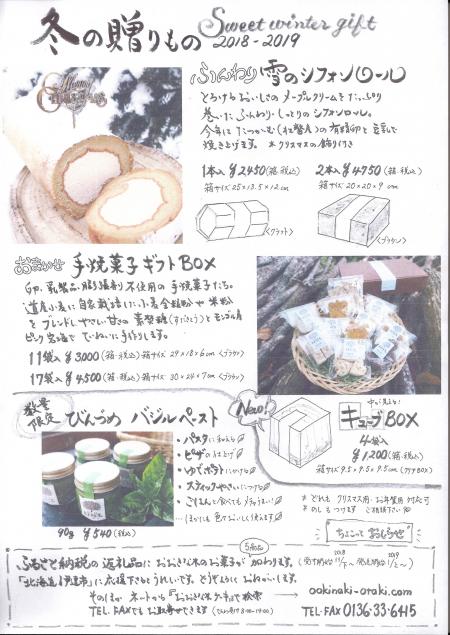 冬の贈りもの Sweet winter gift
2018-2019
Merry Christmas
ふんわり 雪のシフォンロール
とろけるおいしさのメープルクリームをたっぷり
巻いた ふんわり・しっとりのシフォンロール。
の有精卵と豆乳で
焼き上げます。 *クリスマスの飾り付き
1本入 ¥2450(箱・税込)
箱サイズ 25×13.5×12cm
2本入 ¥4750(箱・税込)
箱サイズ 20×20×9cm
<ブラウン>
おまかせ 手焼菓子ギフトBOX
卵、乳製品、膨張剤不使用の手焼菓子たち。
道産小麦に自家栽培した小麦全粒粉や米粉
をブレンドし やさしい甘さの素焚糖(すだきとう)とモンゴル産
ピンク岩塩で ていねいに手作りします。
11袋入 ¥3000(箱・税込) 箱サイズ 29×18×6cm <ブラウン>
17袋入 ¥4,500(箱・税込) 箱サイズ 30×24×7cm <ブラウン>
数量限定 びんづめ バジルペースト
・パスタに和える
・ピザの仕上げ
・ゆでポテトにかける
・スティックやさいにつける
・ごはんと食べても
90g ¥540(税込)
New!
中が見える!
キューブBOX
4袋入
¥1,200(箱・税込)
箱サイズ 9.5×9.5×9.5cm
*どれもクリスマス用・お年賀用 対応可
*のしもつきます ご相談下さい
ちょこっと おしらせ
ふるさと納税の返礼品に おおきな木のお菓子が加わります。
「北海道 に応援下さるとうれしいです。どうぞよろしくおねがいします。
そのほか ネットから『おおきな木 ケーキ』で検索
ookinaki-otaki.com
TEL・FAXでもお取寄せできます
TEL・FAX 0136・33・6115